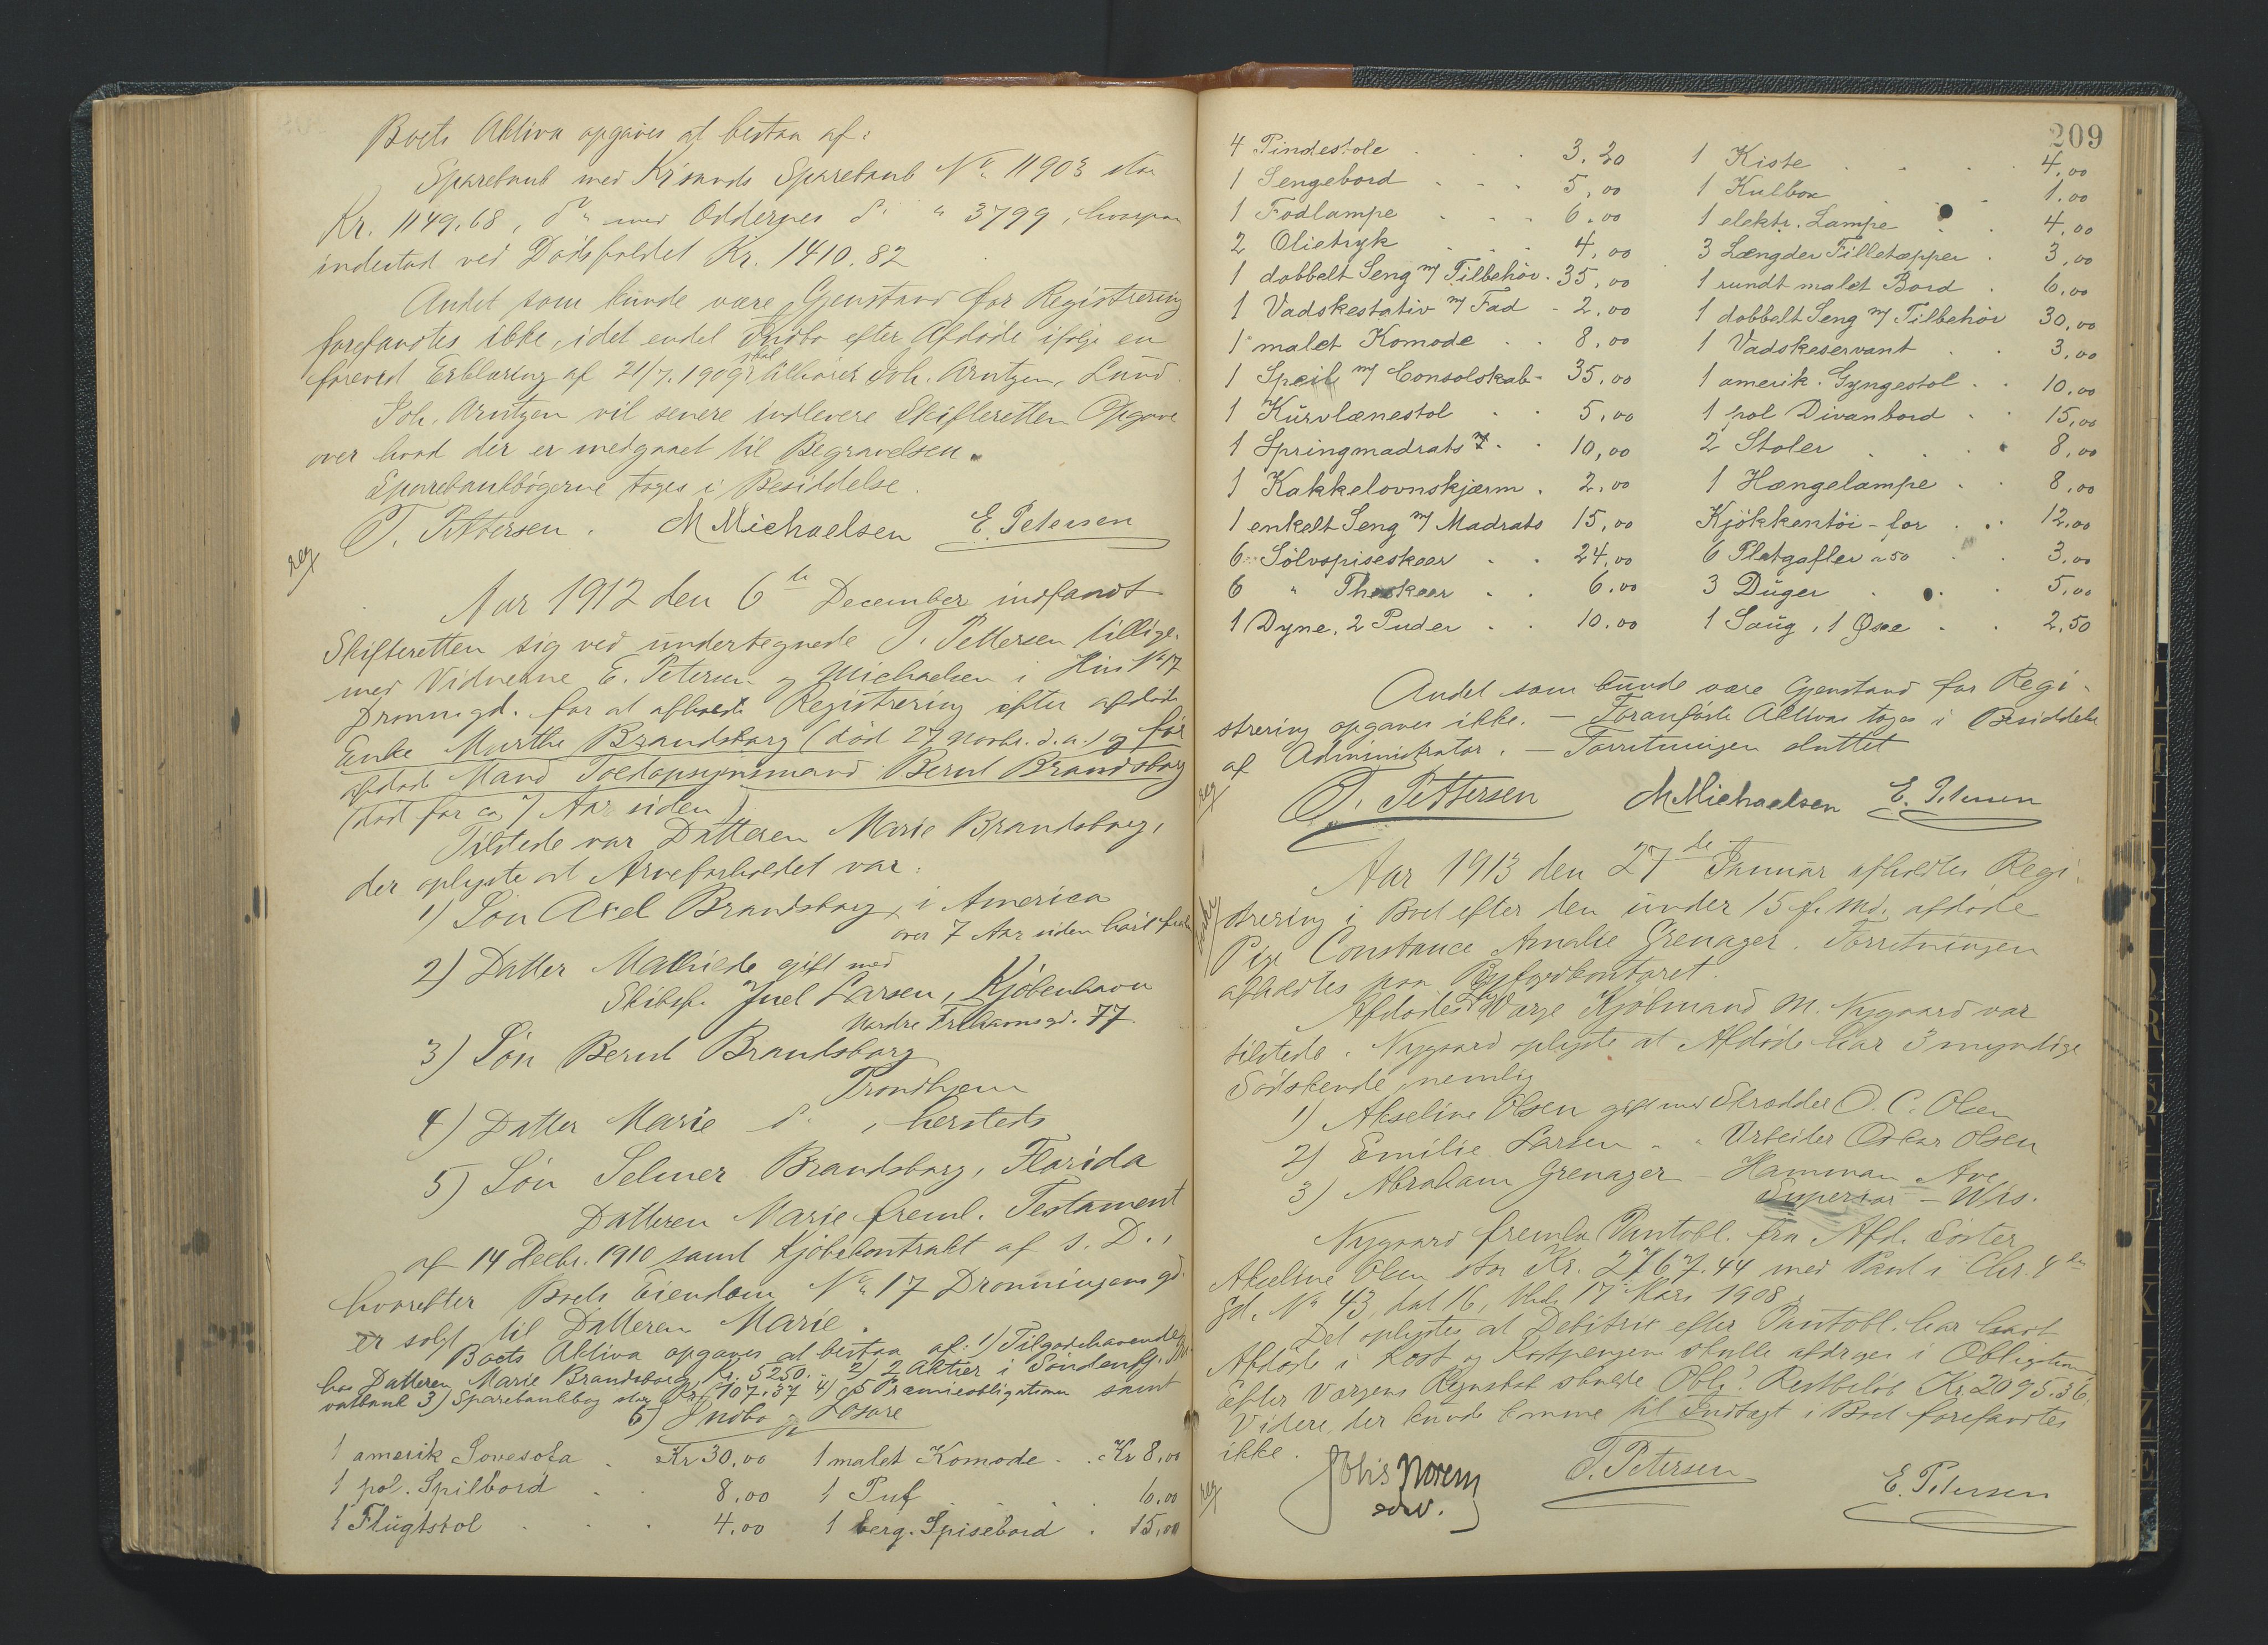 Boets Aktiva opgaves at bestaa af:
Sparebank med Kr.sands Sparebank No 11903 stor
Kr. 1149,68, do med Oddernes do " 3799, hvorpaa
indestod ved Dødsfaldet Kr. 1410.82
Andet som kunde være Gjenstand for Registrering
forefandtes ikke, idet endel Indbo efter Afdøde ifølge en
forevist Erklæring af 21/7.1909 skal tilhører Joh. Arntzen, Lund.
Joh. Arntzen vil senere indlevere Skifteretten Opgave
over hvad der er medgaaet til Begravelsen.
Sparebankbøgerne toges i Besiddelse.
T. Pettersen. M Michaelsen E. Petersen
reg
Aar 1912 den 6te December indfandt
Skifteretten sig ved undertegnede T. Pettersen tillige.
med Vidnerne E. Petersen og Michaelsen i Hus No 17
Dronnigd. for at afholde Registrering efter afdøde
Enke Marthe Brandsborg (død 27 Novbr. d.a.) og før
afdøde Mand Toldopsynsmand Bernt Brandsborg
(død for ca 7 Aar siden)
Tilstede var Datteren Marie Brandsborg,
der oplyste at Arveforholdet var:
1) Søn Axel Brandsborg, i America
over 7 Aar siden hørt fra
2) Datter Mathilde gift med
Skibsf. Juel Larsen, Kjøbenhavn
Nordre Frihavnsgd. 77.
3) Søn Bernt Brandsborg
Trondhjem
4) Datter Marie do, hersteds
5) Søn Selmer Brandsborg, Florida
Datteren Marie freml. Testament
af 14 Decbr. 1910 samt Kjøbekontrakt af s. D.,
hvorefter Boets Eiendom No 17 Dronningens gd.
er solgt til Datteren Marie.
Boets Aktiva opgaves at bestaa af: 1) Tilgodehavende
hos Datteren Marie Brandsborg Kr. 5250.- 2) 2 Aktier i Søndenfj.
vatbank 3) Sparebankbog stor Kr. 107.37 4) 5 Præmieobligationer samt
5) Indbo og Løsøre
1 amerik Sovesofa . Kr 30,00 1 malet Komode . . Kr 8,00
1 pol. Spilbord . . 8,00 1 Puf . . . 6,00
1 Flugtstol . . . 4,00 1 berg. Spisebord . 15,00
209
4 Pindestole . . . 3,20 1 Kiste . . . 4,00
1 Sengebord . . . 5,00 1 Kulbox . . . 1,00
1 Fodlampe . . . 6,00 1 elektr. Lampe . . 4,00
2 Olietryk . . . 4,00 3 Længder Filletæpper . 3,00
1 dobbelt Seng m/ Tilbehør . 35,00 1 rundt malet Bord . 6,00
1 Vadskestativ m/ Fad - 2,00 1 dobbelt Seng m/ Tilbehør 30,00
1 malet Komode . . 8,00 1 Vadskeservant . . 3,00
1 Speil m/ Consolskab - 35,00 1 amerik. Gyngestol . . 10,00
1 Kurvlænestol . . 5,00 1 pol Divanbord . . 15,00
1 Springmadrats . . 10,00 2 Stoler . . . 8,00
1 Kakkelovnskjærm . 2,00 1 Hængelampe . . 8,00
1 enkelt Seng m/ Madrats 15,00 Kjøkkentøi - for . . 12,00
6 Sølvspiseskeer . . 24,00 6 Pletgafler a 50 . . 3,00
6 " Theskeer . . 6,00 3 Duger . . . 5,00
1 Dyne, 2 Puder . . 10,00 1 Saug, 1 Øxe . . 2,50
Andet som kunde være Gjenstand for Regi-
strering opgaves ikke. — Foranførte Aktiva toges i Besiddelse
af Administrator. — Forretningen sluttet
reg
T. Pettersen M Michaelsen E. Petersen
Aar 1913 den 27de Januar afholdtes Regi-
strering i Boet efter den under 15 f. Md. afdøde
Pige Constance Amalie Grenager. Forretningen
afholdtes paa Byfogdkontoret.
Afdødes Værge Kjøbmand M. Nygaard var
tilstede. Nygaard oplyste at Afdøde har 3 myndige
Södskende, nemlig
1) Akseline Olsen gift med Skrædder O. C. Olsen
2) Emilie Larsen " " Arbeider Oskar Olsen
3) Abraham Grenager - Hamman Ave
Superior - Wis.
Nygaard fremla Pantobl. fra Afd. Søster
Akseline Olsen stor Kr. 2767.44 med Pant i Chr. 4des
Gd. No 43, dat 16, thl. 17 Mars 1908.
Det oplystes, at Debitrix efter Pantobl. har havt
Afdøde i Kost og Kostpengene skulle afdrages i Obligationen
Efter Værgens Regnskab skulde Obl. Restbeløb Kr. 2095.36.
Videre, der kunde komme til Indtægt i Boet forefandtes
ikke.
reg
Johs Norem T. Petersen E. Petersen
sdv.